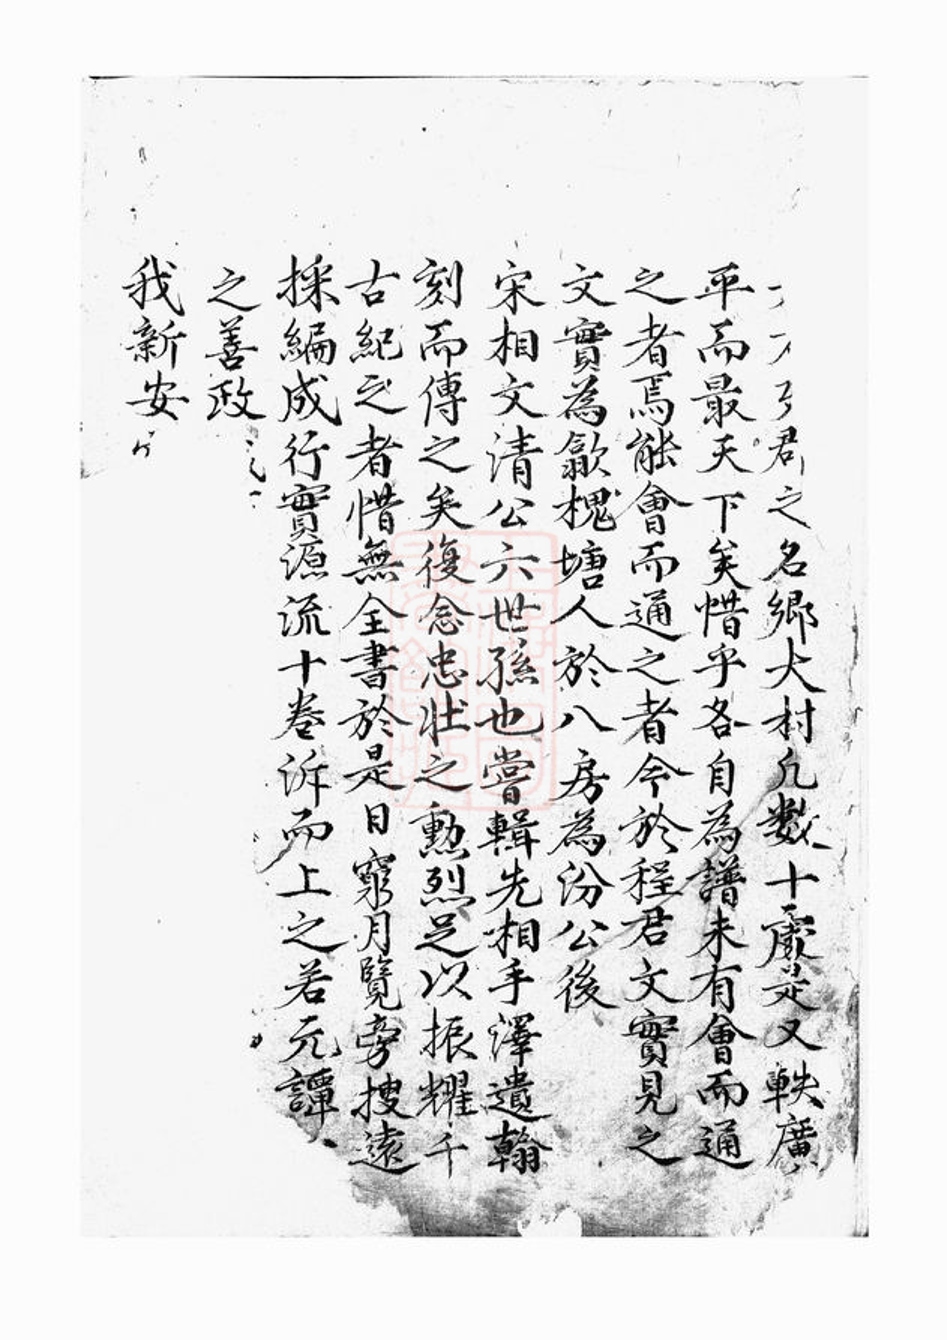 君之名鄉大村凡數十處是又軼廣
平而最天下矣惜乎各自為譜未有會而通
之者焉能會而通之者今於程君文實見之
文實為歙槐塘人於八房為汾公後
宋相文清公六世孫也嘗輯先相手澤遺翰
刻而傳之矣復念忠壯之勳烈足以振耀千
古紀之者惜無全書於是日窮月覽旁搜遠
採編成行實源流十卷泝而上之若元譚
之善政
我新安